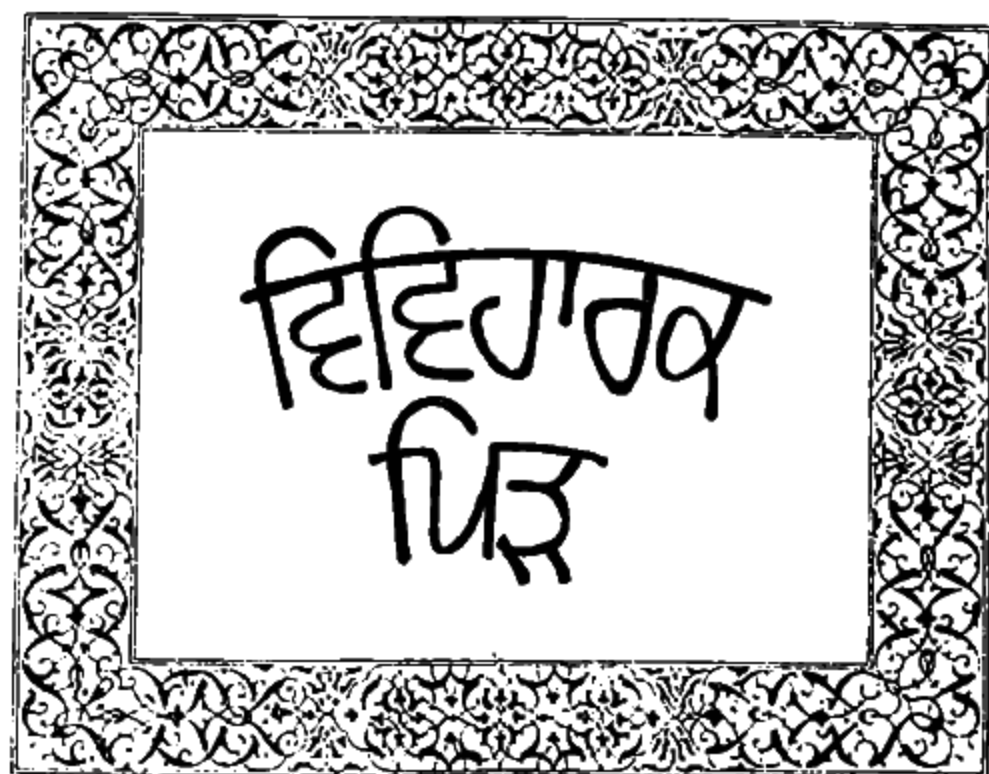 ਵਿਵਿਹਾਰਕ
ਪਿੜ